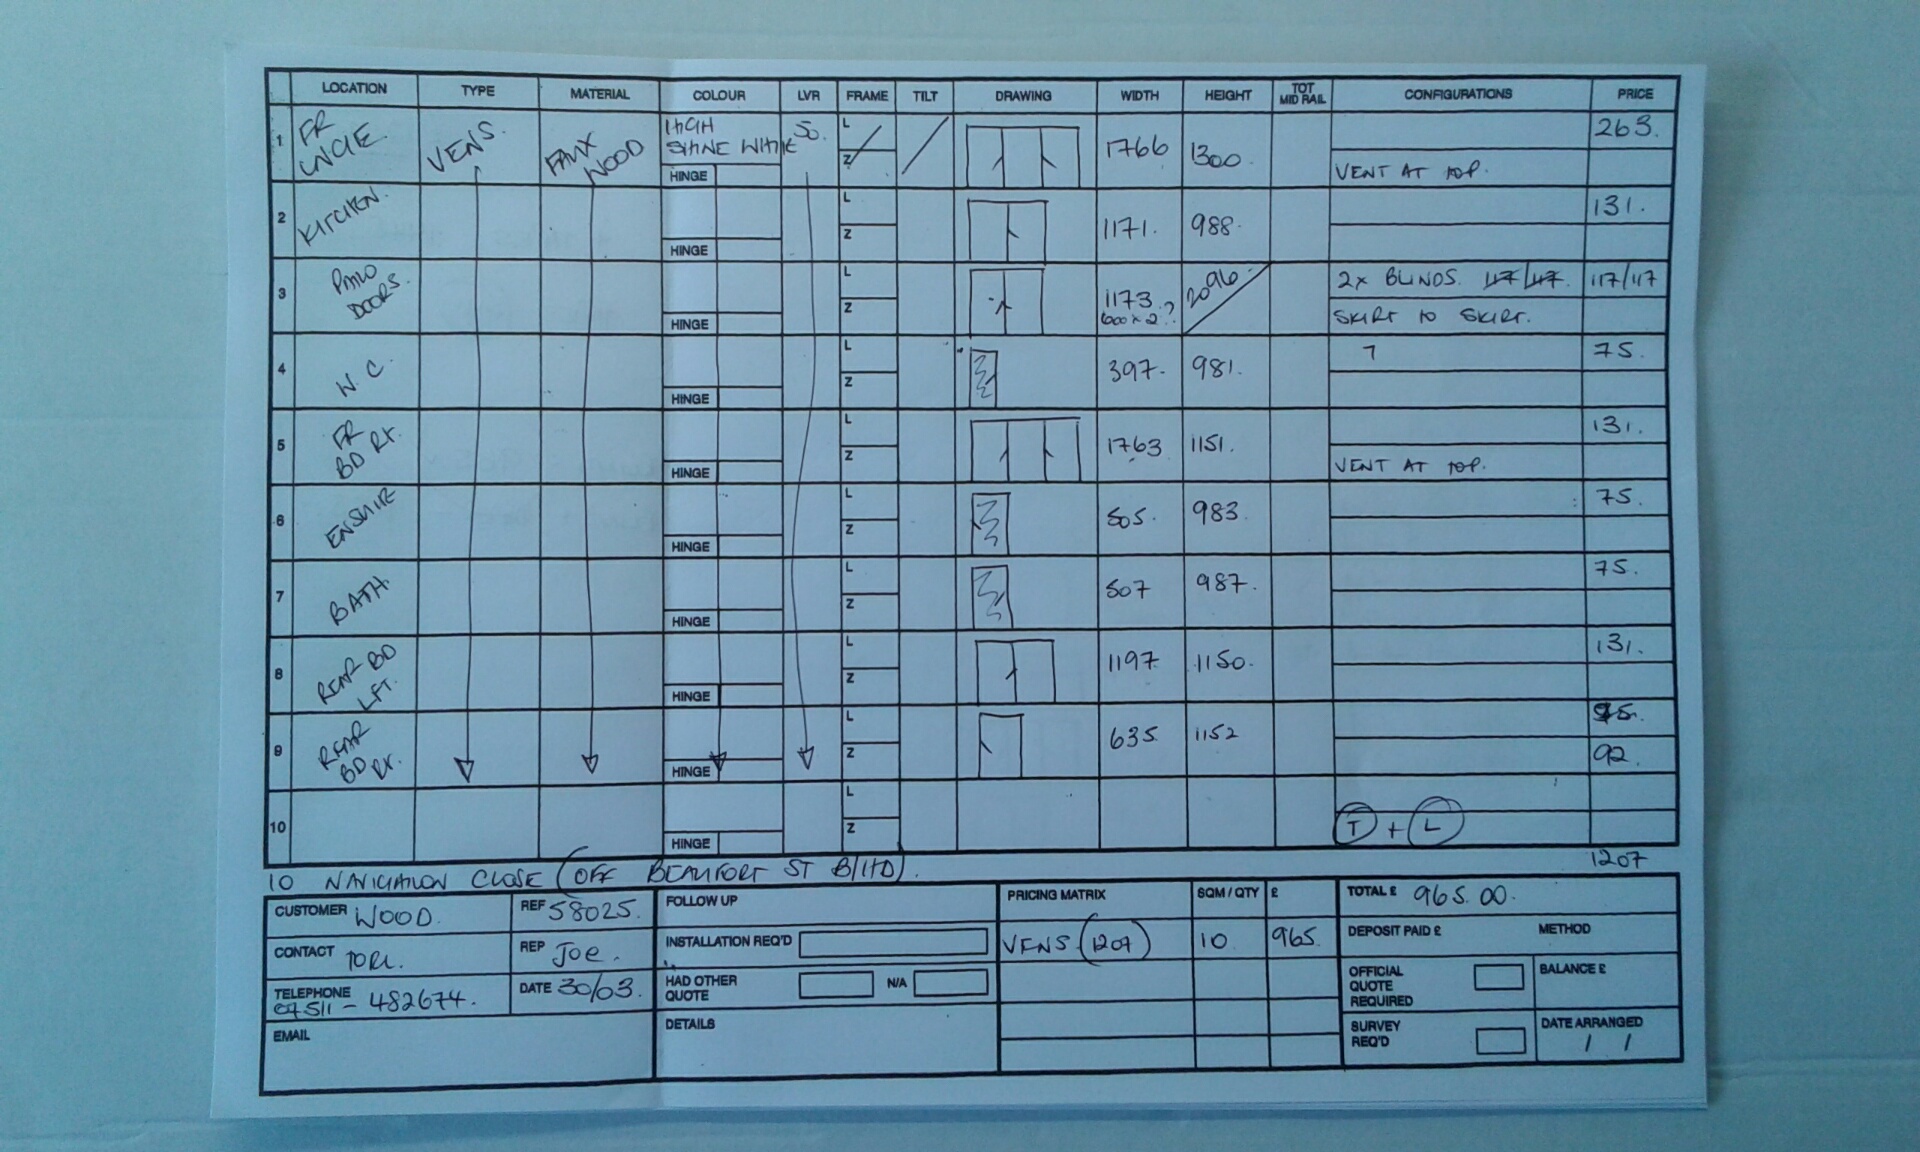 LOCATION TYPE MATERIAL COLOUR LVR FRAME TILT DRAWING WIDTH HEIGHT TOT MID RAIL CONFIGURATIONS PRICE
1 FR VENS. FAUX WOOD HIGH SHINE WHITE 50. L Z 1766 1300. 263.
HINGE VENT AT TOP.
2 KITCHEN. L Z 1171. 988. 131.
HINGE
3 PATIO DOORS. L Z 1173 600 x 2? 2096. 2x BLINDS. 117/117. 117/117
HINGE SKIRT TO SKIRT.
4 W.C. L Z 397. 981. 7 75.
HINGE
5 FR BD RT. L Z 1763 1151. 131.
HINGE VENT AT TOP.
6 ENSUITE L Z 505. 983. 75.
HINGE
7 BATH. L Z 507 987. 75.
HINGE
8 REAR BD LFT. L Z 1197 1150. 131.
HINGE
9 REAR BD RT. L Z 635 1152
HINGE 92.
10 L Z
HINGE T + L
1207
10 NAVIGATION CLOSE (OFF BEAUFORT ST B/HD).
CUSTOMER WOOD. REF 58025.
CONTACT TORI. REP JOE.
TELEPHONE 07511 - 482674. DATE 30/03.
EMAIL
FOLLOW UP
INSTALLATION REQ'D
HAD OTHER QUOTE N/A
DETAILS
PRICING MATRIX SQM / QTY £
VENS. (1207) 10 965.
TOTAL £ 965.00.
DEPOSIT PAID £ METHOD
OFFICIAL QUOTE REQUIRED BALANCE £
SURVEY REQ'D DATE ARRANGED
/ /